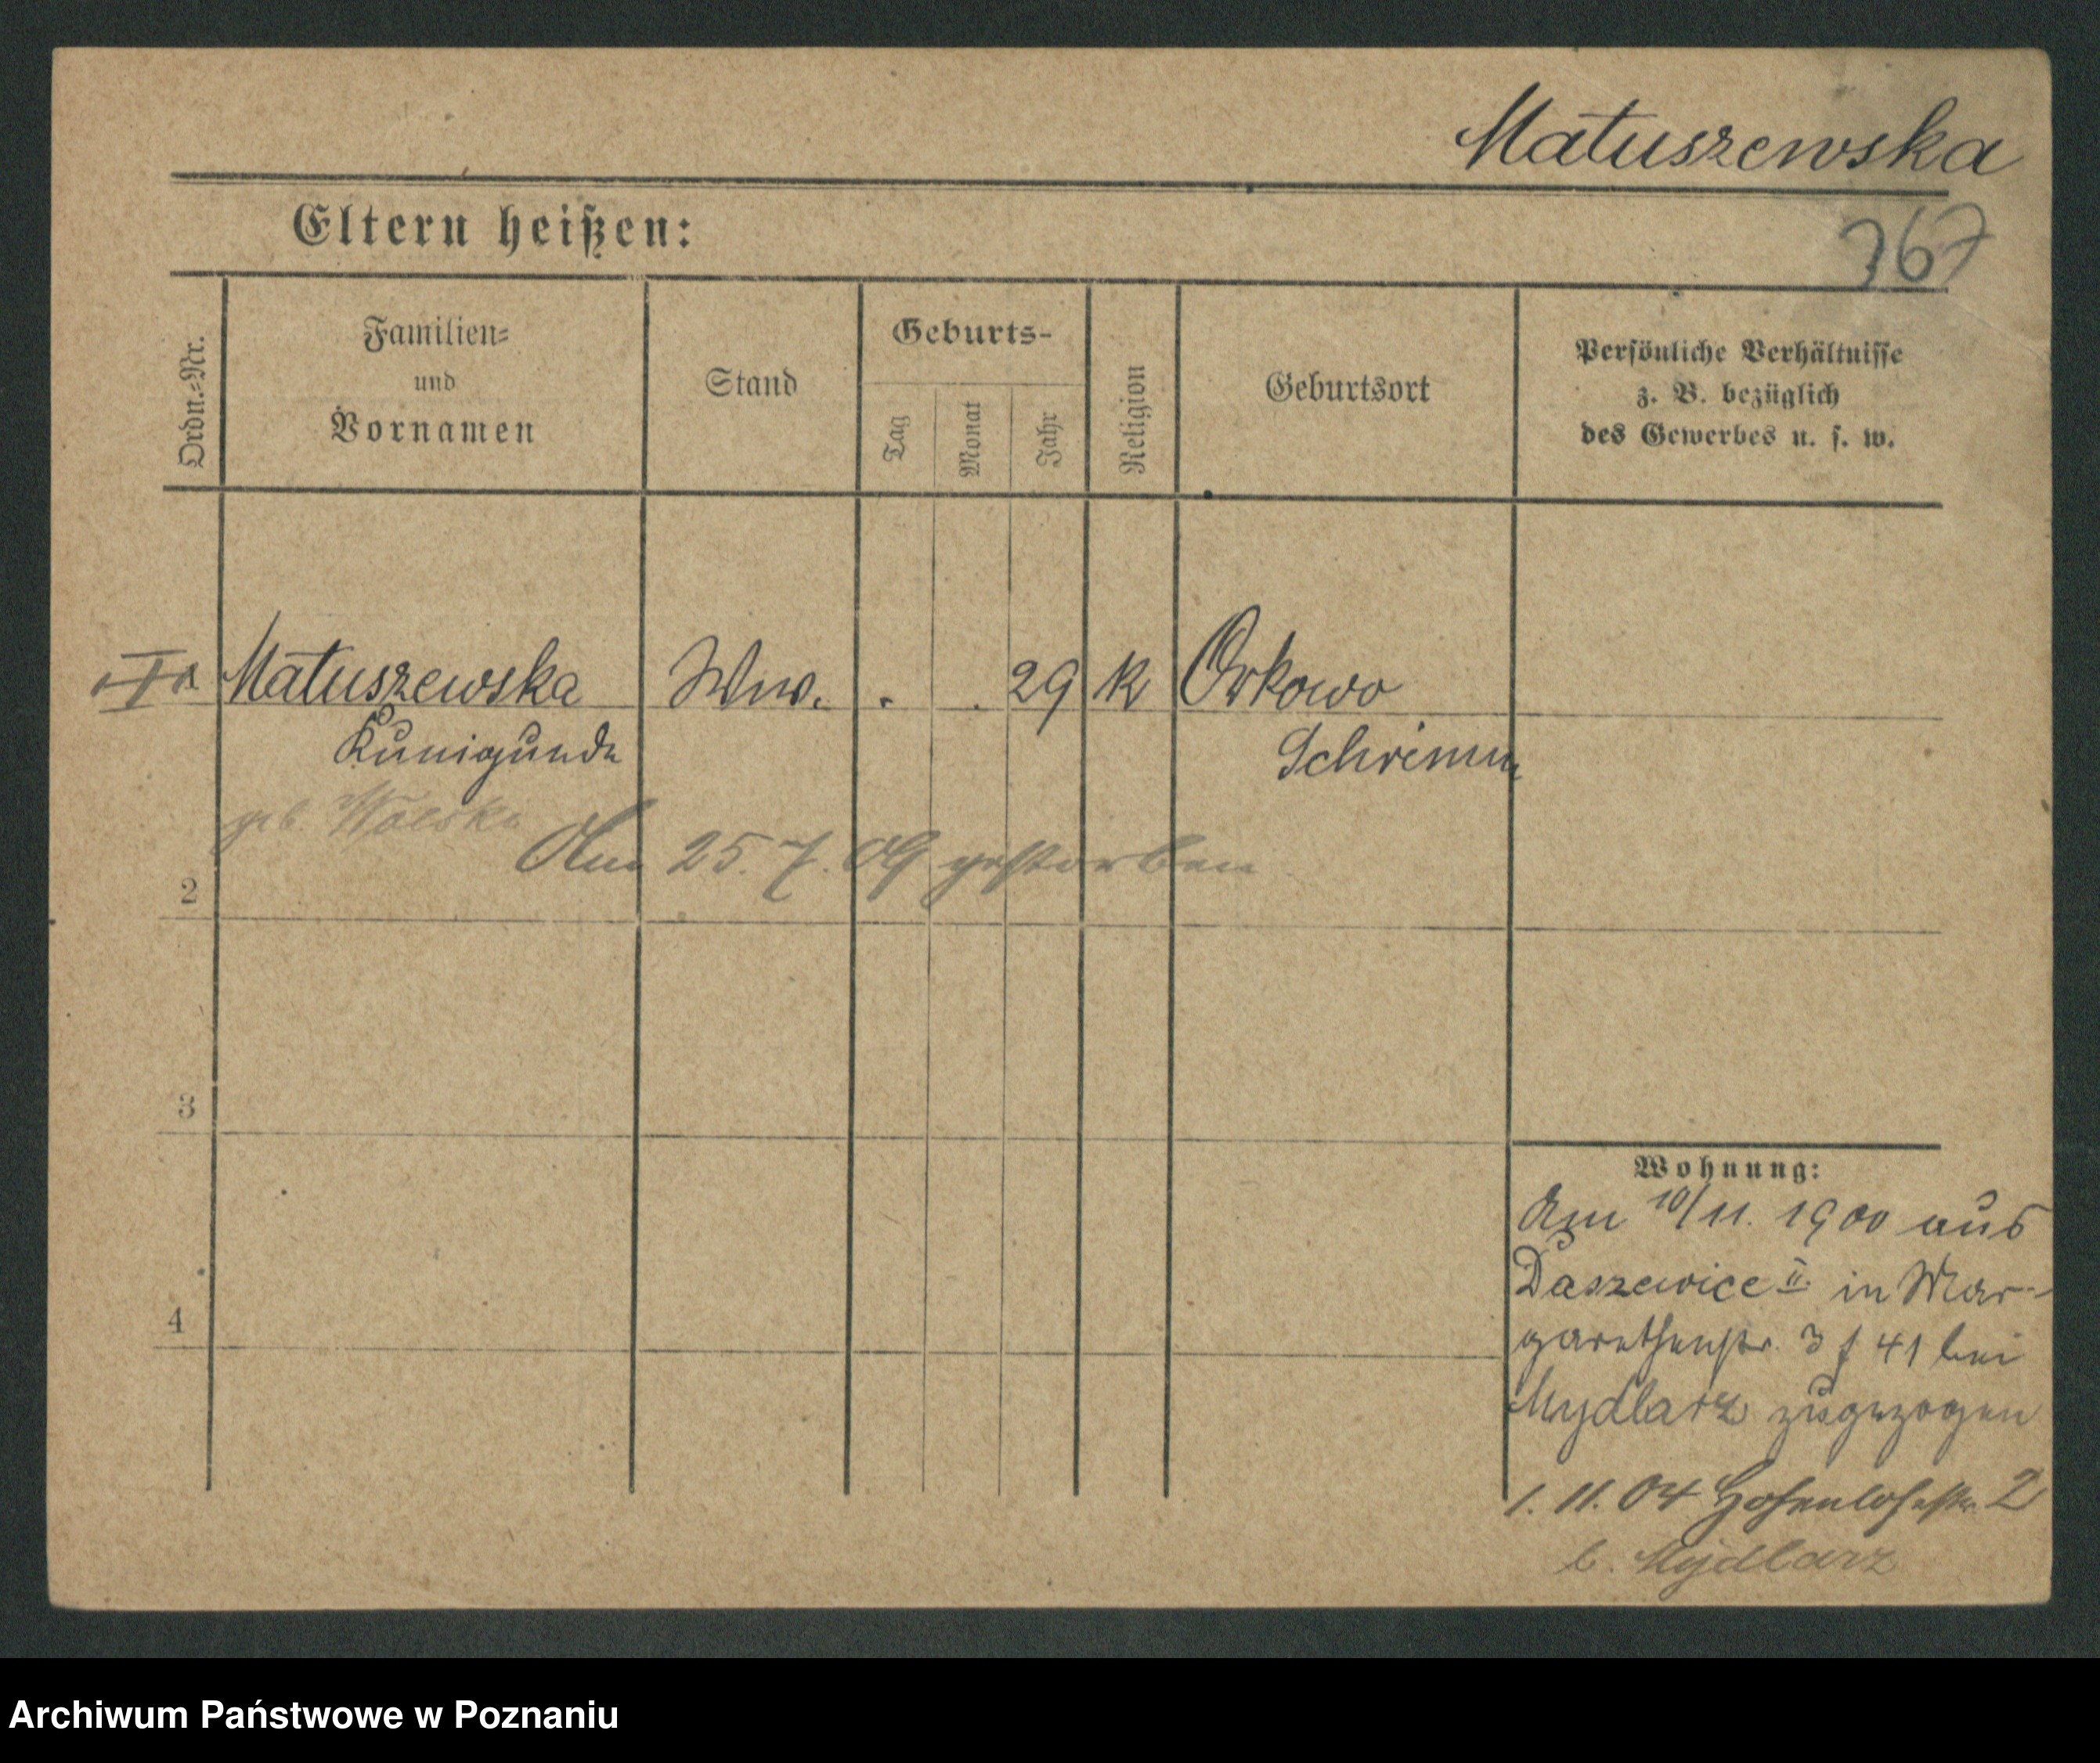 Matuszewska
367
Eltern heißen:
Ordn.=Nr.
Familien=
und
Vornamen
Stand
Geburts-
Tag
Monat
Jahr
Religion
Geburtsort
Persönliche Verhältnisse
z. B. bezüglich
des Gewerbes u. s. w.
Matuszewska Ww. . . 29 k Orkowo
Kunigunde Schrimm
geb. Wolska
Am 25. 7. 09 gestorben
2
3
4
Wohnung:
Am 10/11. 1900 aus
Daszewice II. in Mar-
garethenstr. 3 f 41 bei
Mydlarz zugezogen
1. 11. 04 Hohenlohestr. 2
b. Mydlarz
Archiwum Państwowe w Poznaniu